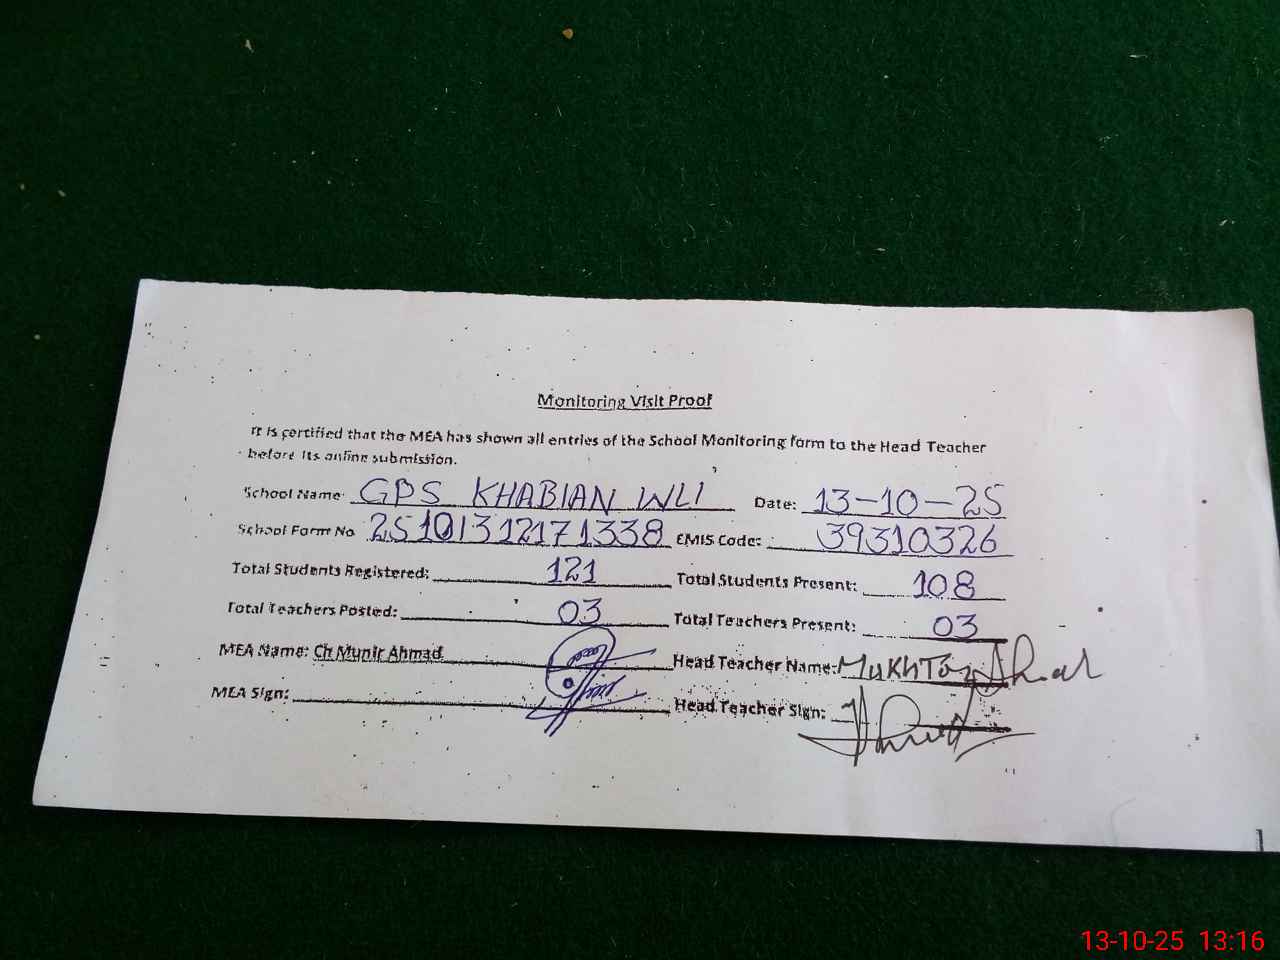 Monitoring Visit Proof
It is certified that the MEA has shown all entries of the School Monitoring form to the Head Teacher
before its online submission.
School Name: GPS KHABIAN WLI Date: 13-10-25
School Form No 25101312171338 EMIS Code: 39310326
Total Students Registered: 121 Total Students Present: 108
Total Teachers Posted: 03 Total Teachers Present: 03
MEA Name: Ch Munir Ahmad Head Teacher Name: Mukhtar Ahmad
MEA Sign: Head Teacher Sign:
13-10-25 13:16